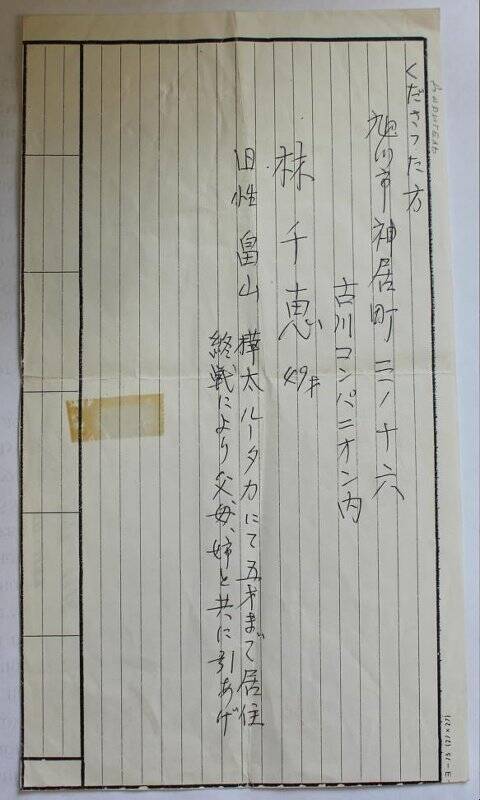 くださった方
旭川市神居町二ノ十六
古川コンパニオン内
林千恵 49才
旧性 畠山 樺太ルータカにて五才まで居住
終戦により父母、姉と共に引あげ
ヨ-13 (21×27)